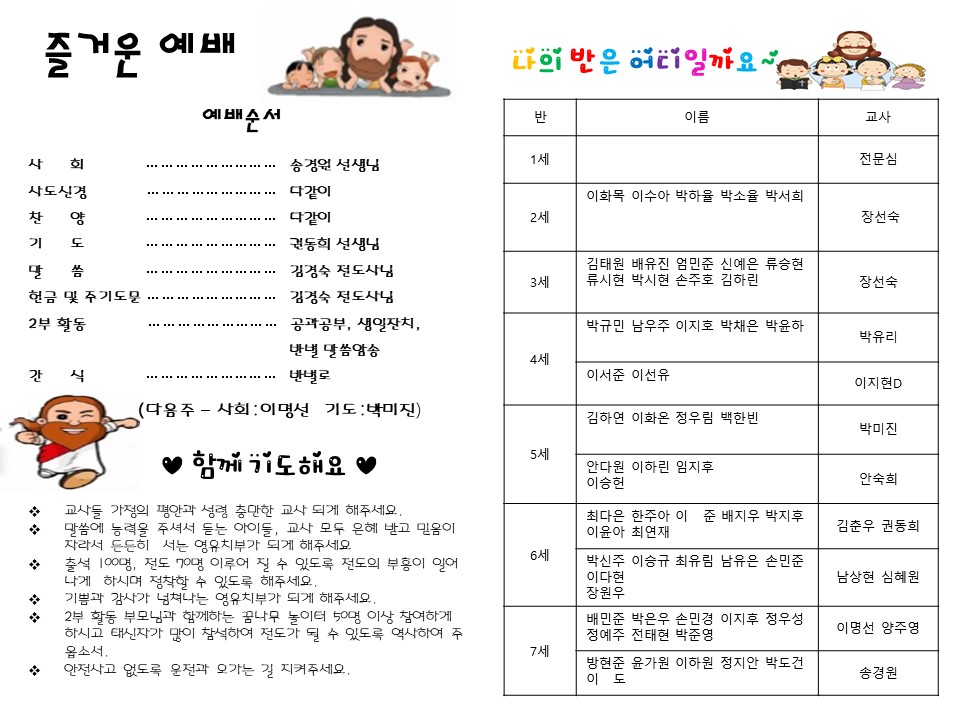 즐거운 예배
예배순서
사 회 ……………………… 송경원 선생님
사도신경 ……………………… 다같이
찬 양 ……………………… 다같이
기 도 ……………………… 권동희 선생님
말 씀 ……………………… 김경숙 전도사님
헌금 및 주기도문 ……………………… 김경숙 전도사님
2부 활동 ……………………… 공과공부, 생일잔치,
반별 말씀암송
간 식 ……………………… 반별로
(다음주 – 사회:이명선 기도:박미진)
♥ 함께 기도해요 ♥
❖ 교사들 가정의 평안과 성령 충만한 교사 되게 해주세요.
❖ 말씀에 능력을 주셔서 듣는 아이들, 교사 모두 은혜 받고 믿음이
자라서 든든히 서는 영유치부가 되게 해주세요
❖ 출석 100명, 전도 70명 이루어 질 수 있도록 전도의 부흥이 일어
나게 하시며 정착할 수 있도록 해주세요.
❖ 기쁨과 감사가 넘쳐나는 영유치부가 되게 해주세요.
❖ 2부 활동 부모님과 함께하는 꿈나무 놀이터 50명 이상 참여하게
하시고 태신자가 많이 참석하여 전도가 될 수 있도록 역사하여 주
옵소서.
❖ 안전사고 없도록 운전과 오가는 길 지켜주세요.
나의 반은 어디일까요~
반 이름 교사
1세 전문심
2세 이화목 이수아 박하율 박소율 박서희 장선숙
3세 김태원 배유진 엄민준 신예은 류승현
류시현 박시현 손주호 김하린 장선숙
4세 박규민 남우주 이지호 박채은 박윤하 박유리
이서준 이선유 이지현D
5세 김하연 이화온 정우림 백한빈 박미진
안다원 이하린 임지후
이승헌 안숙희
6세 최다은 한주아 이 준 배지우 박지후
이윤아 최연재 김춘우 권동희
박신주 이승규 최유림 남유은 손민준
이다현
장원우 남상현 심혜원
7세 배민준 박은우 손민경 이지후 정우성
정예주 전태현 박준영 이명선 양주영
방현준 윤가원 이하원 정지안 박도건
이 도 송경원